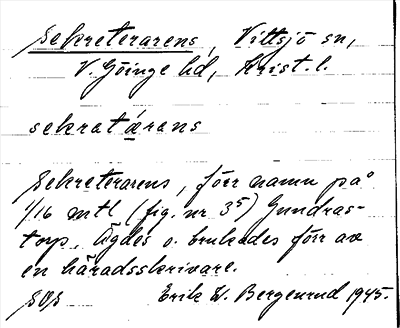 Sekreterarens, Vittsjö sn,
V. Göinge hd, Krist. l.
sekratǽrens
Sekreterarens, förr namn på
1/16 mtl (fig. nr 35) Gundras-
torp. Ägdes o. brukades förr av
en häradsskrivare.
Erik W. Bergenrud 1945.